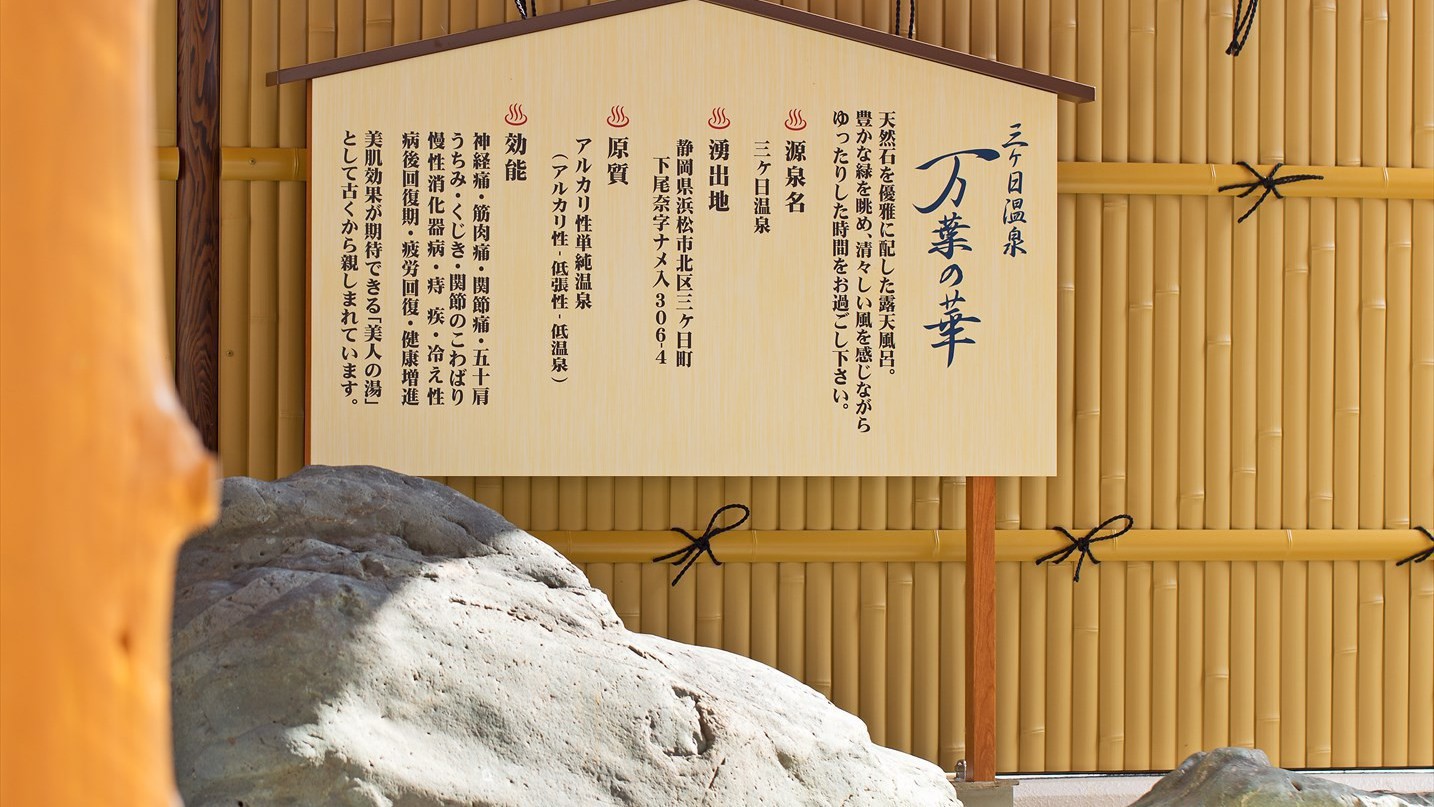 三ケ日温泉
万葉の華
天然石を優雅に配した露天風呂。
豊かな緑を眺め、清々しい風を感じながら
ゆったりした時間をお過ごし下さい。
源泉名
三ケ日温泉
湧出地
静岡県浜松市北区三ケ日町
下尾奈字ナメ入306-4
原質
アルカリ性単純温泉
（アルカリ性-低張性-低温泉）
効能
神経痛・筋肉痛・関節痛・五十肩
うちみ・くじき・関節のこわばり
慢性消化器病・痔 疾・冷え性
病後回復期・疲労回復・健康増進
美肌効果が期待できる「美人の湯」
として古くから親しまれています。